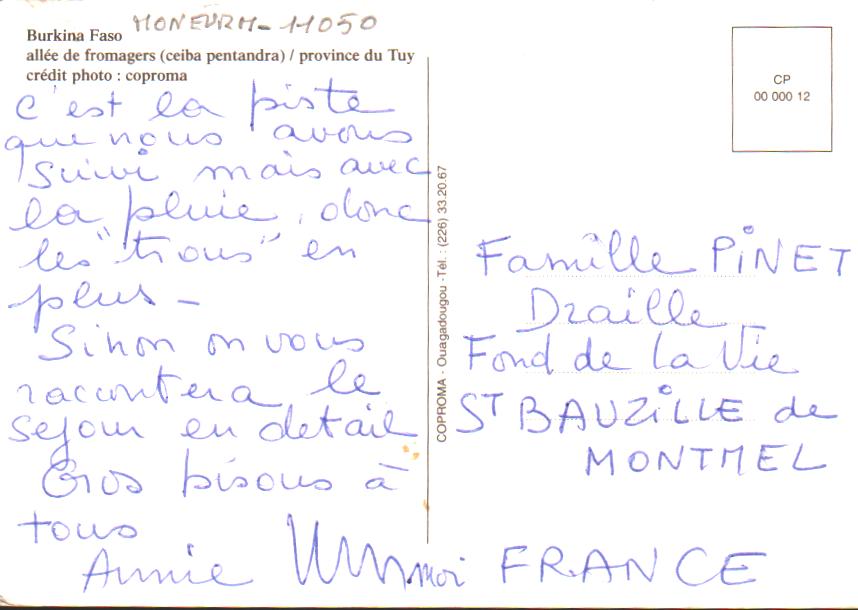 MONEURM - 11050
Burkina Faso
allée de fromagers (ceiba pentandra) / province du Tuy
crédit photo : coproma
c'est la piste
que nous avons
suivi mais avec
la pluie, donc
les "trous" en
plus -
Sinon on vous
racontera le
sejour en detail
Gros bisous à
tous
Annie
moi
COPROMA - Ouagadougou - Tél. : (226) 33.20.67
CP
00 000 12
Famille PiNET
Draille
Fond de la Vie
ST BAUZiLLE de
MONTMEL
FRANCE